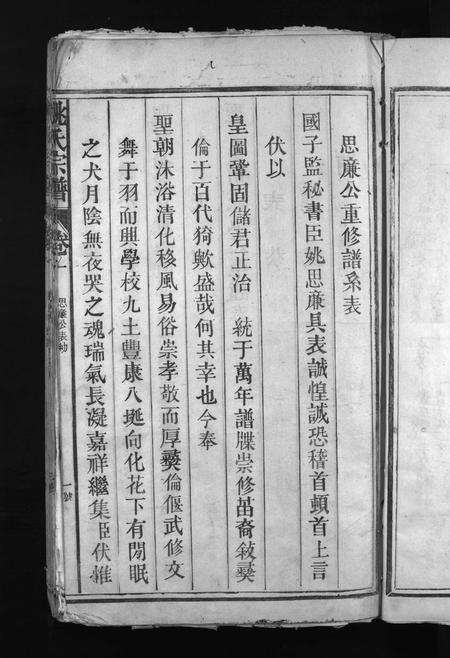 思廉公重修譜系表
國子監秘書臣姚思廉具表誠惶誠恐稽首頓首上言
伏以
皇圖鞏固儲君正治 統于萬年譜牒崇修苗裔敍彛
倫于百代猗歟盛哉何其幸也今奉
聖朝沐浴清化移風易俗崇孝敬而厚彛倫偃武修文
舞干羽而興學校九土豐康八埏向化花下有閒眠
之犬月陰無夜哭之魂瑞氣長凝嘉祥繼集臣伏惟
姚氏宗譜 卷
思廉公表